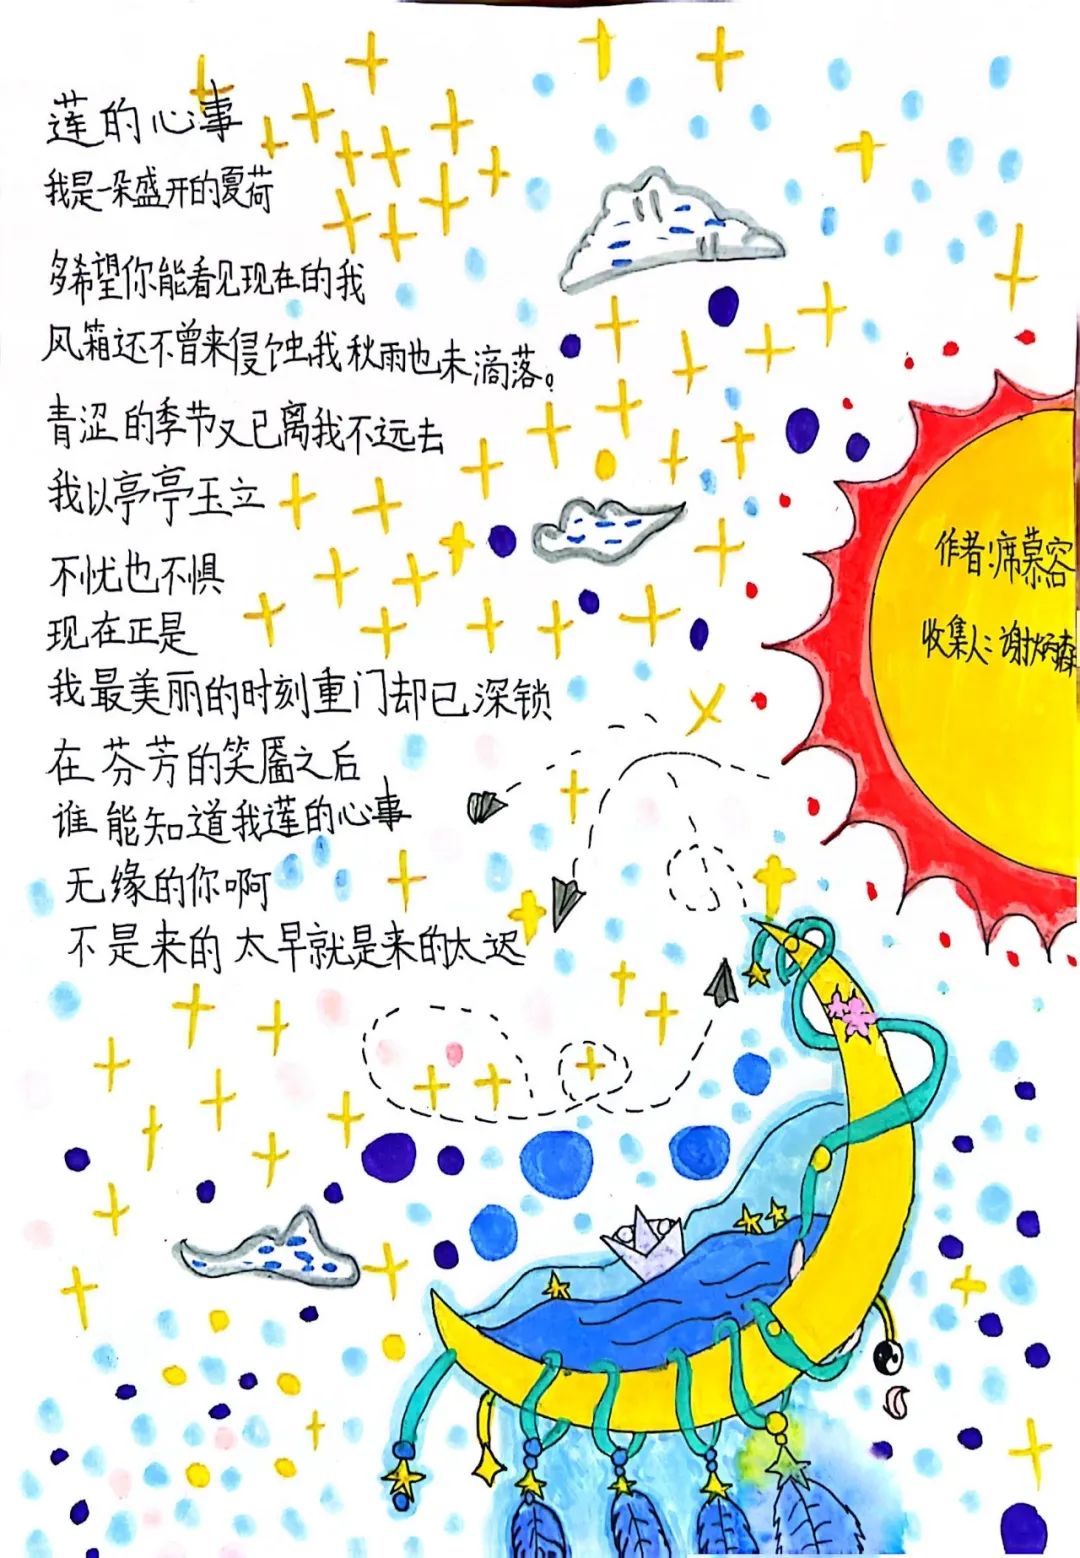 莲的心事
我是一朵盛开的夏荷
多希望你能看见现在的我
风箱还不曾来侵蚀我秋雨也未滴落。
青涩的季节又已离我不远去
我以亭亭玉立
不忧也不惧
现在正是
我最美丽的时刻重门却已深锁
在芬芳的笑靥之后
谁能知道我莲的心事
无缘的你啊
不是来的太早就是来的太迟
作者:席慕容
收集人:谢炳森